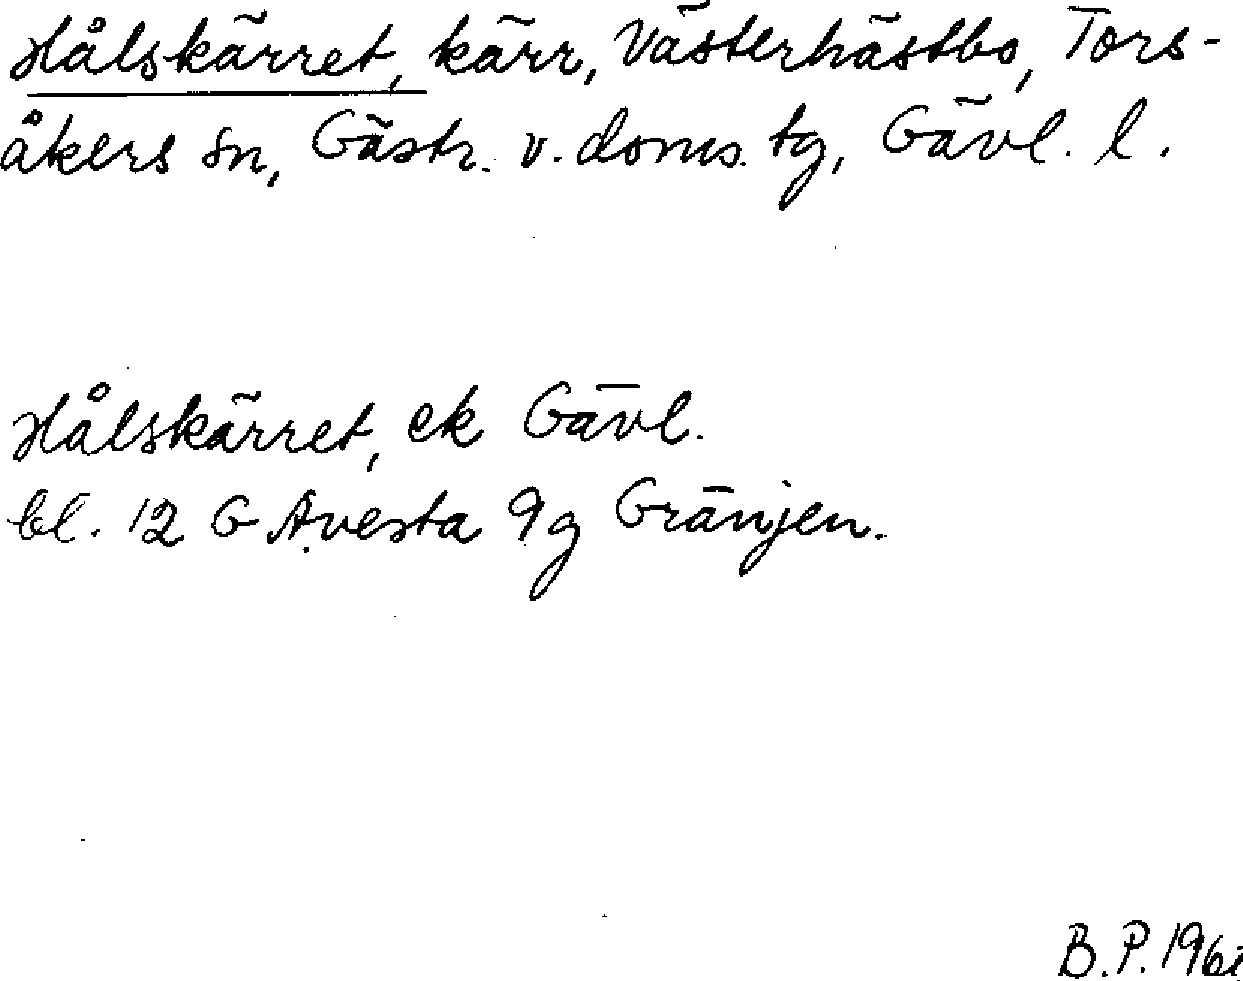 Hålskärret, kärr, Västerhästbo, Tors-
åkers sn, Gästr. v. doms. tg, Gävl. l.
Hålskärret, ek Gävl.
bl. 12 G Avesta 9g Gränjen.
B.P.